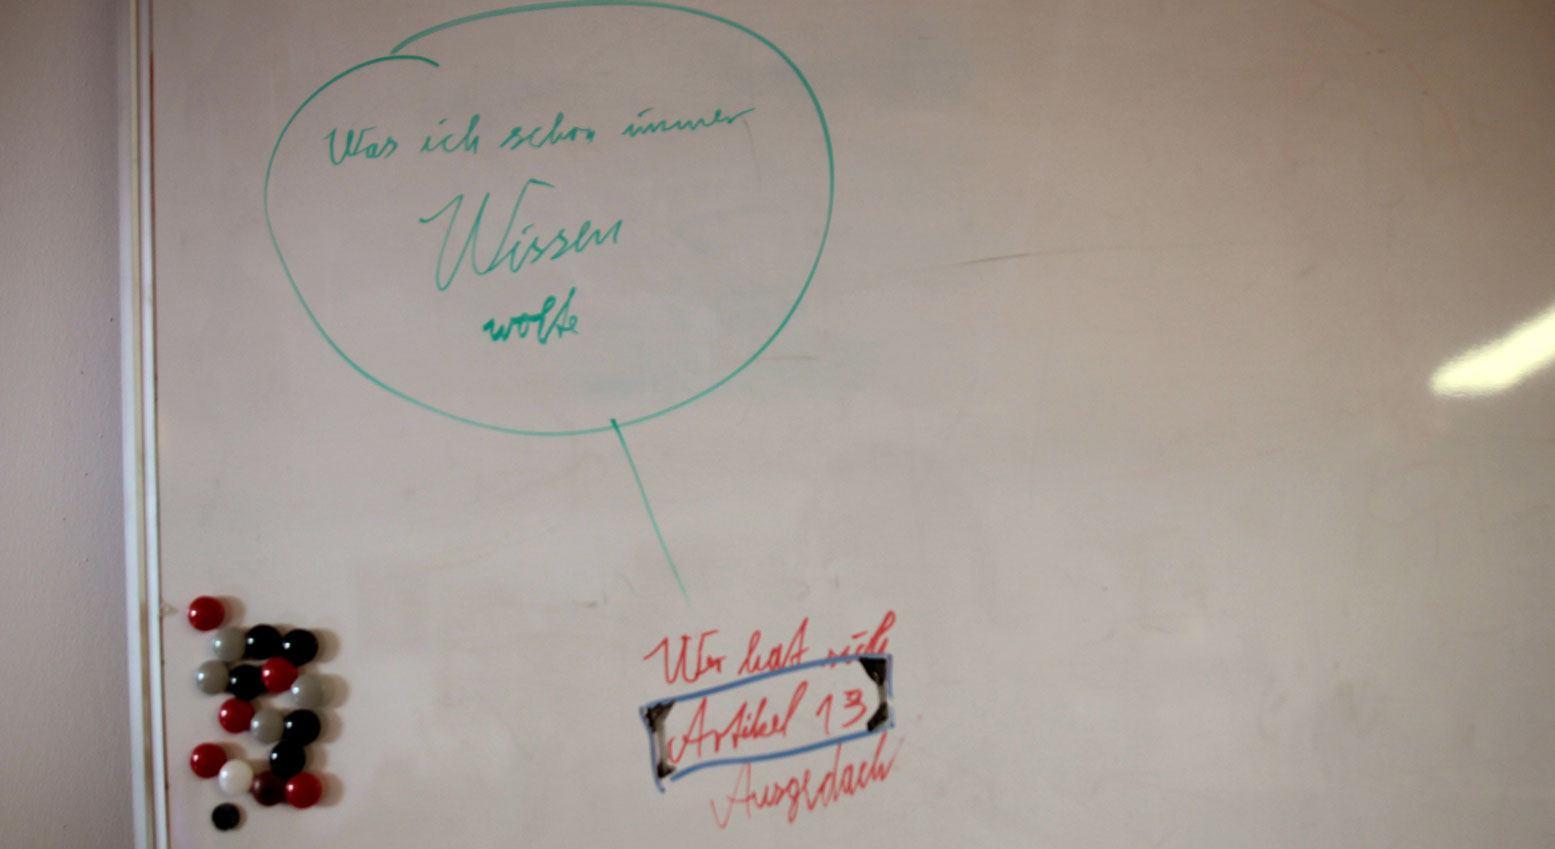 Was ich schon immer
Wissen
wolte
Wer hat sich
Artikel 13
Ausgedach